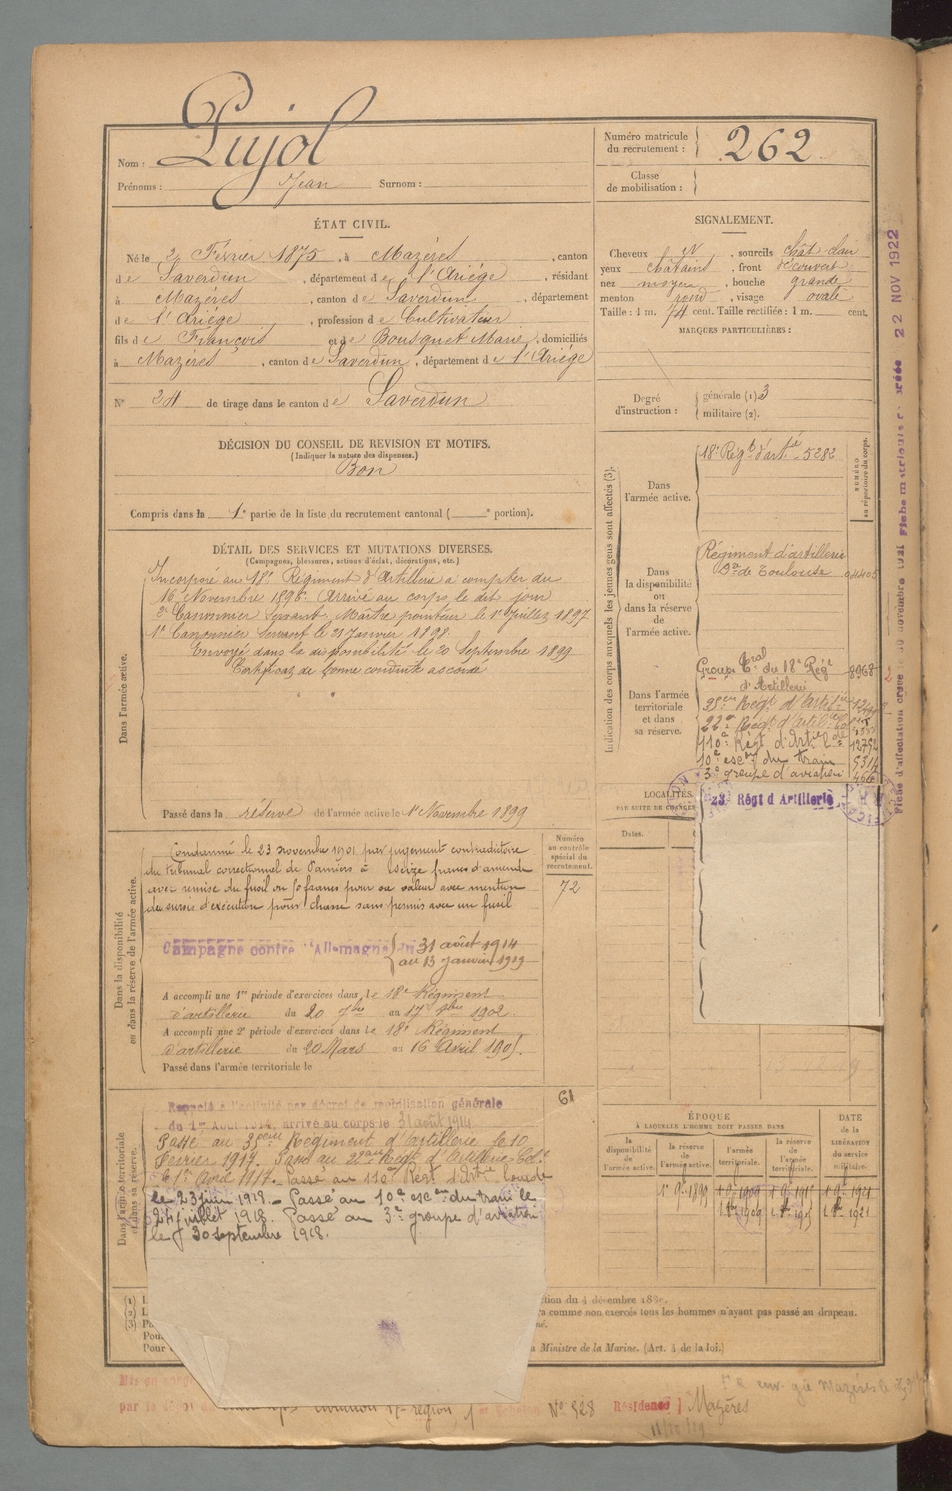 Nom : Pujol
Prénoms : Jean Surnom :
Numéro matricule
du recrutement : 262
Classe
de mobilisation :
ÉTAT CIVIL.
Né le 2 Février 1875, à Mazères, canton
de Saverdun, département de l'Ariége, résidant
à Mazères, canton de Saverdun, département
de l'Ariége, profession de Cultivateur
fils de François et de Bousquet Marie, domiciliés
à Mazères, canton de Saverdun, département de l'Ariége
N° 24 de tirage dans le canton de Saverdun
SIGNALEMENT.
Cheveux N, sourcils chât. clair
yeux châtains, front découvert
nez moyen, bouche grande
menton rond, visage ovale
Taille : 1 m. 74 cent. Taille rectifiée : 1 m. cent.
MARQUES PARTICULIÈRES :
Degré
d'instruction :
générale (1) 3
militaire (2).
DÉCISION DU CONSEIL DE REVISION ET MOTIFS.
(Indiquer la nature des dispenses.)
Bon
Compris dans la 1e partie de la liste du recrutement cantonal ( e portion).
DÉTAIL DES SERVICES ET MUTATIONS DIVERSES.
(Campagnes, blessures, actions d'éclat, décorations, etc.)
Dans l'armée active.
Incorporé au 18e Régiment d'Artillerie à compter du
16 Novembre 1896. Arrivé au corps le dit jour
2e Canonnier Servant. Maître pointeur le 1er Juillet 1897
1er Canonnier Servant le 21 Janvier 1898.
Envoyé dans la disponibilité le 20 Septembre 1899
Certificat de bonne conduite accordé
Passé dans la réserve de l'armée active le 1er Novembre 1899
Indication des corps auxquels les jeunes gens sont affectés (3).
NUMÉRO
au répertoire du corps.
Dans
l'armée active.
18e Régt d'artie 5282
Dans
la disponibilité
ou
dans la réserve
de l'armée active.
Régiment d'artillerie
de Toulouse
Dans l'armée
territoriale
et dans
sa réserve.
Groupe Tral du 18e Régt 8968
d'Artillerie
35eme Régt d'Artillerie
22e Régt d'Artillerie
110e Régt d'Artie Lde 12752
10e escon du train 5314
3e groupe d'aviation 466
23e Régt d'Artillerie
LOCALITÉS
PAR SUITE DE CHANGE
Dates.
Dans la disponibilité
ou dans la réserve de l'armée active.
Numéro
au contrôle
spécial du
recrutement.
72
Condamné le 23 novembre 1901 par jugement contradictoire
du tribunal correctionnel de Pamiers à seize francs d'amende
avec remise du fusil ou 50 francs pour sa valeur avec mention
du sursis d'exécution pour chasse sans permis avec un fusil
Campagne contre l'Allemagne du 31 août 1914
au 13 janvier 1919
A accompli une 1re période d'exercices dans le 18e Régiment
d'artillerie du 20 7bre au 17 8bre 1902.
A accompli une 2e période d'exercices dans le 18e Régiment
d'artillerie du 20 Mars au 16 Avril 1905.
Passé dans l'armée territoriale le
61
Dans l'armée territoriale
et dans sa réserve.
Rappelé à l'activité par décret de mobilisation générale
du 1er Août 1914, arrivé au corps le 31 août 1914
Passé au 35eme Régiment d'artillerie le 10
Février 1917. Passé au 22eme Régt d'Artillerie
le 1er Avril 1917. Passé au 110e Régt d'Artie Lourde
le 23 juin 1918. Passé au 10e escon du train le
24 juillet 1918. Passé au 3e groupe d'aviation
le 30 septembre 1918.
ÉPOQUE
À LAQUELLE L'HOMME DOIT PASSER DANS
la
disponibilité
de l'armée active.
la réserve
de
l'armée active.
l'armée
territoriale.
la
réserve de
l'armée
territoriale.
DATE
de la
LIBÉRATION
du service
militaire.
1er 9e 1899
ction du 4 décembre 1889.
ra comme non exercés tous les hommes n'ayant pas passé au drapeau.
Ministre de la Marine. (Art. 4 de la loi.)
Mis en congé
aviation 17e région 1er Echelon N° 528 Résidence Mazères
22 NOV 1922